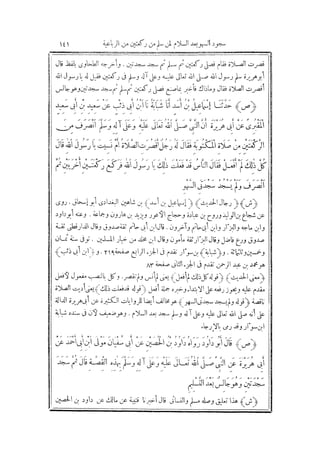 سجود السهو بعد السلام لمن سلم من ركعتين من الرباعية ١٤١
قصرت الصلاة فقام فصلى ركعتين ثم سلم ثم سجد سجدتين. وأخرجه الطحاوى بلفظ قال
أبو هريرة سلم رسول الله صلى الله تعالى عليه وعلى آله وسلم فى ركعتين فقيل له يا رسول الله
أقصرت الصلاة فقال وماذاك فأخبر بما صنع فصلى ركعتين ثم سلم ثم سجد سجدتين وهو جالس
﴿ص﴾ حَدَّثَنَا إِسْمَاعِيلُ بْنُ أَسَدٍ أَنَا شَبَابَةُ نَا ابْنُ أَبِي ذِئْبٍ عَنْ سَعِيدِ بْنِ أَبِي سَعِيدٍ
الْمَقْبُرِيِّ عَنْ أَبِي هُرَيْرَةَ أَنَّ النَّبِيَّ صَلَّى اللهُ تَعَالَى عَلَيْهِ وَعَلَى آلِهِ وَسَلَّمَ انْصَرَفَ مِنَ
الرَّكْعَتَيْنِ مِنْ صَلَاةِ الْمَكْتُوبَةِ فَقَالَ لَهُ رَجُلٌ أَقُصِرَتِ الصَّلَاةُ يَا رَسُولَ اللهِ أَمْ نَسِيتَ قَالَ
كُلَّ ذَلِكَ لَمْ أَفْعَلْ فَقَالَ النَّاسُ قَدْ فَعَلْتَ ذَلِكَ يَا رَسُولَ اللهِ فَرَكَعَ رَكْعَتَيْنِ أُخْرَيَيْنِ ثُمَّ
انْصَرَفَ وَلَمْ يَسْجُدْ سَجْدَتَيِ السَّهْوِ
﴿ش﴾ ﴿رجال الحديث﴾ ﴿إسماعيل بن أسد﴾ بن شاهين البغدادى أبو إسحاق. روى
عن شجاع بن الوليد وروح بن عبادة وحجاج الأعور ويزيد بن هارون وجماعة. وعنه أبو داود
وابن ماجه والبزار وابن أبى حاتم وآخرون. قال ابن أبى حاتم ثقة صدوق وقال الدارقطنى ثقة
صدوق ورع فاضل وقال البزار ثقة مأمون وقال ابن مخلد من خيار المسلمين. توفى سنة ثمان
وخمسين ومائتين. و ﴿شبابة﴾ بن سوار تقدم فى الجزء الرابع صفحة ٢١٩. و ﴿ابن أبى ذئب﴾
هو محمد بن عبد الرحمن تقدم فى الجزء الثانى صفحة ٨٣
﴿معنى الحديث﴾ ﴿قوله كل ذلك لم أفعل﴾ يعنى لم أنس ولم تقصر. وكل بالنصب مفعول لأفعل
مقدم عليه ويجوز رفعه على الابتداء وخبره جملة أفعل ﴿قوله قد فعلت ذلك﴾ يعنى أديت الصلاة
ناقصة ﴿قوله ولم يسجد سجدتى السهو﴾ هو مخالف أيضا للروايات الكثيرة عن أبى هريرة الدالة
على أنه صلى الله تعالى عليه وعلى آله وسلم سجد بعد السلام. وهو ضعيف لأن فى سنده شبابة
ابن سوار وقد رمى بالإرجاء.
﴿ص﴾ قَالَ أَبُو دَاوُدَ رَوَاهُ دَاوُدُ بْنُ الْحُصَيْنِ عَنْ أَبِي سُفْيَانَ مَوْلَى ابْنِ أَبِي أَحْمَدَ عَنْ
أَبِي هُرَيْرَةَ عَنِ النَّبِيِّ صَلَّى اللهُ تَعَالَى عَلَيْهِ وَعَلَى آلِهِ وَسَلَّمَ بِهَذِهِ الْقِصَّةِ قَالَ ثُمَّ سَجَدَ
سَجْدَتَيْنِ وَهُوَ جَالِسٌ بَعْدَ التَّسْلِيمِ
﴿ش﴾ هذا تعليق وصله مسلم والنسائى قال أخبرنا قتيبة عن مالك عن داود بن الحصين